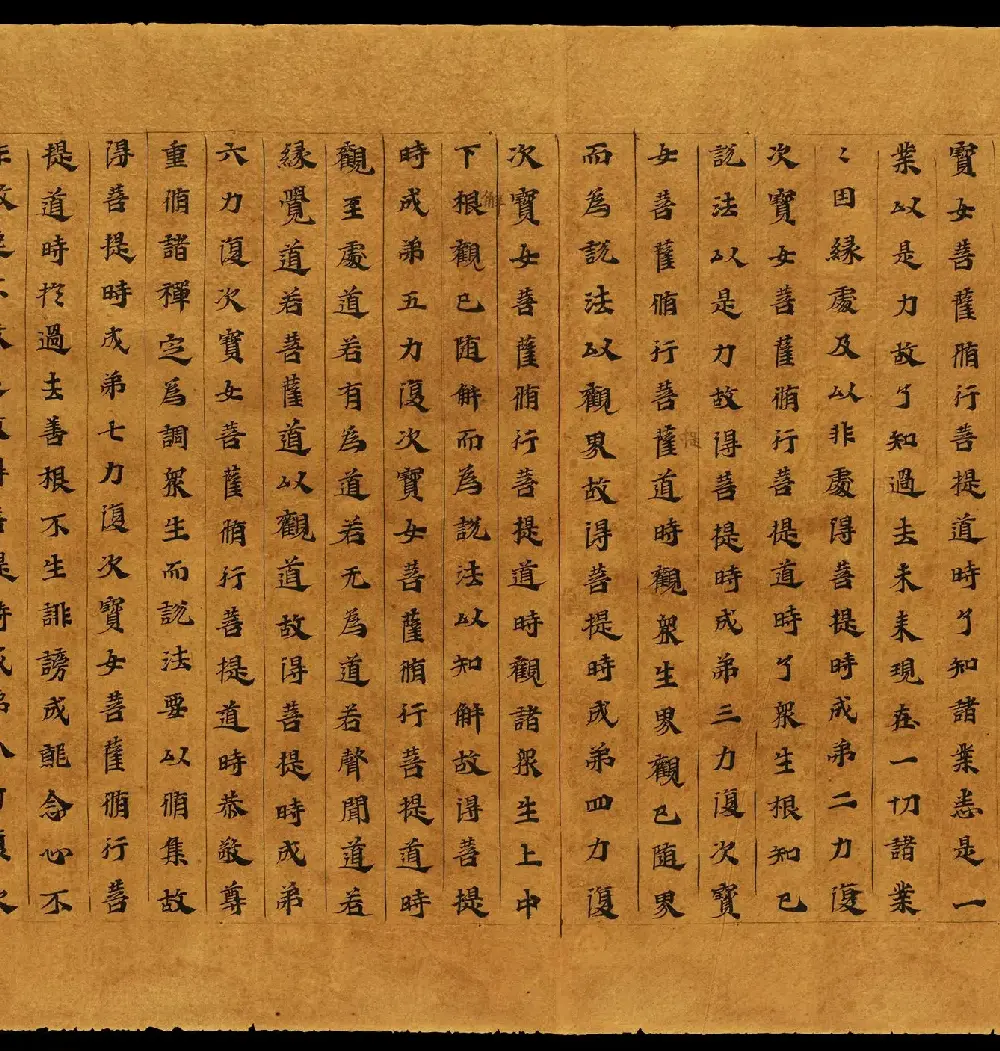 寳女菩薩脩行菩提道時了知諸業悉是一
業以是力故了知過去未来現在一切諸業
〻因縁處及以非處得菩提時成弟二力復
次寳女菩薩脩行菩提道時了眾生根知已
說法以是力故得菩提時成弟三力復次寳
女菩薩脩行菩薩道時觀眾生界觀已随界
提
而為說法以觀界故得菩提時成弟四力復
次寳女菩薩脩行菩提道時觀諸眾生上中
解
下根觀已随解而為說法以知解故得菩提
時成弟五力復次寳女菩薩脩行菩提道時
觀至處道若有為道若无為道若聲聞道若
縁覺道若菩薩道以觀道故得菩提時成弟
六力復次寳女菩薩脩行菩提道時恭敬尊
重脩諸禪定為調眾生而說法要以脩集故
得菩提時成弟七力復次寳女菩薩脩行菩
提道時扵過去善根不生誹謗成就念心不